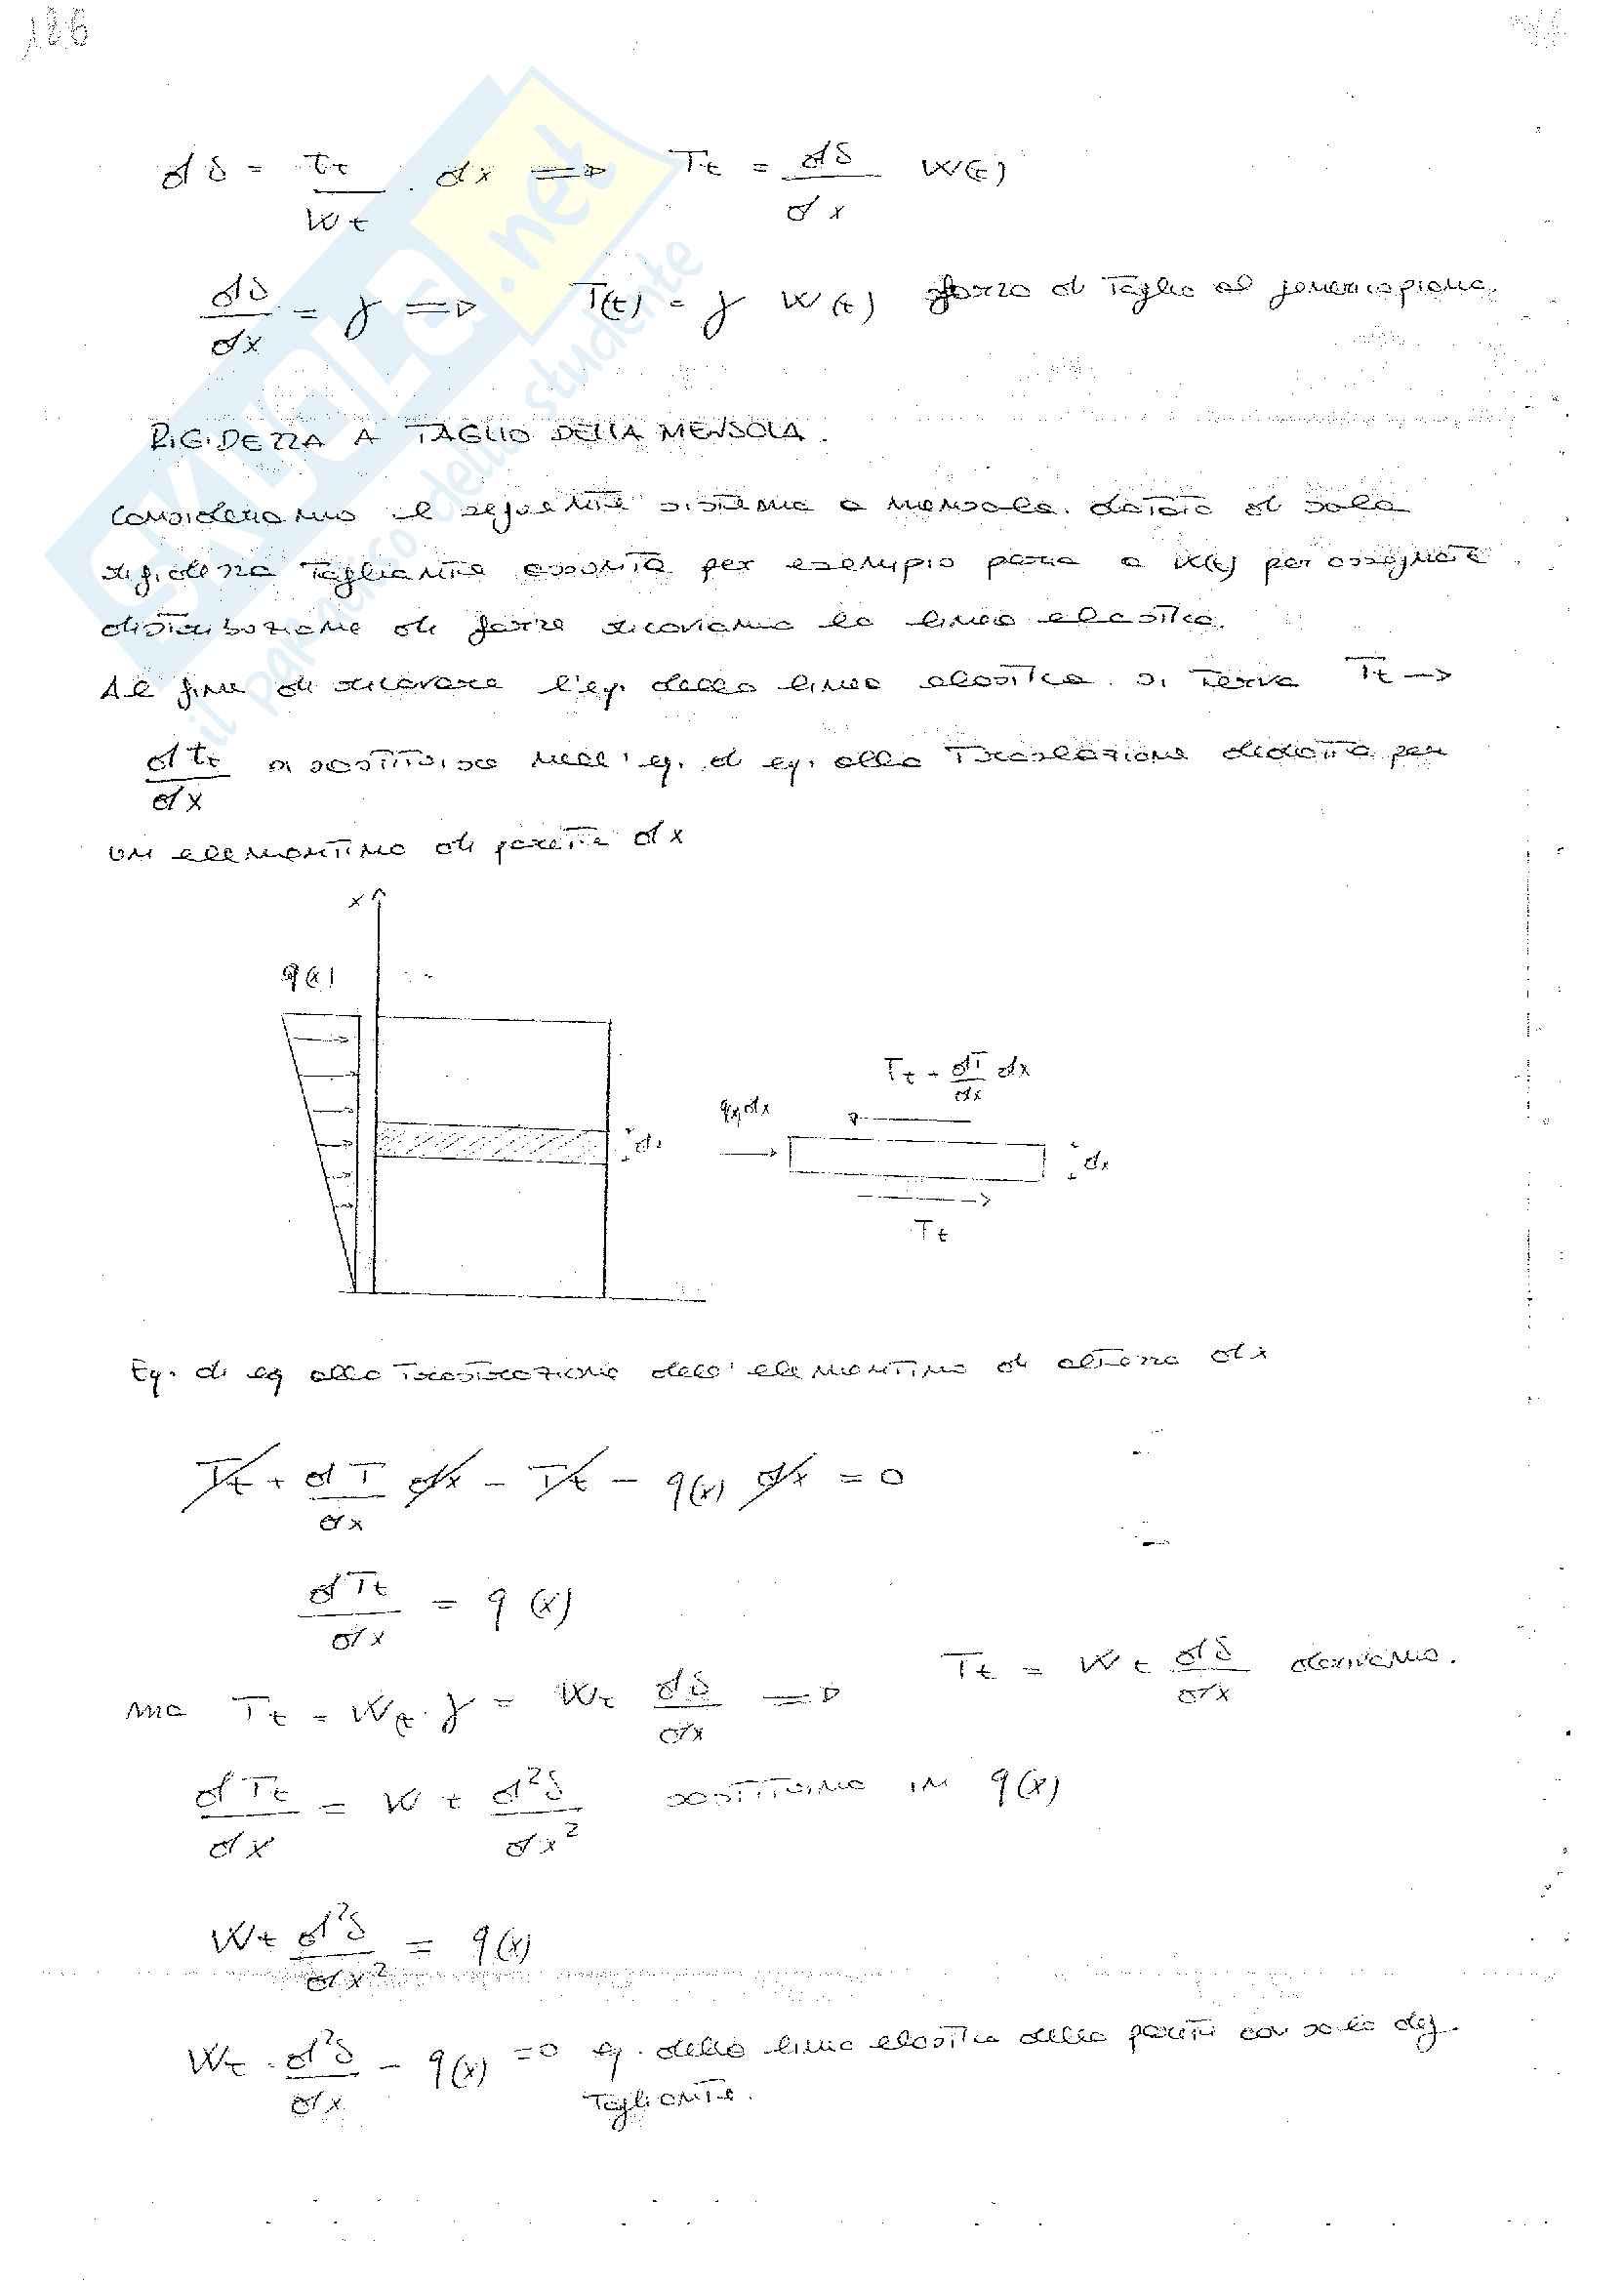 186
dδ = Tt/Wt · dx => Tt = dδ/dx W(t)
dδ/dx = γ => T(t) = γ W(t) forza di Taglio al generico piano.
RIGIDEZZA A TAGLIO DELLA MENSOLA.
Consideriamo il seguente sistema a mensola dotata di sola
rigidezza Tagliante assunta per esempio pari a W(t) per assegnate
distribuzione di forze ricaviamo la linea elastica.
Al fine di ricavare l'eq. della linea elastica si Tt ->
dTt/dx si sostituisce nell'eq. di eq. alla Traslazione dedotta per
un elementino di parete dx
x
q(x)
Tt + dT/dx dx
q(x) dx
dx
dx
Tt
Eq. di eq alla dell'elementino di altezza dx
Tt + dT/dx dx - Tt - q(x) dx = 0
dTt/dx = q(x)
Tt = Wt dδ/dx deriviamo.
ma Tt = Wt · γ = Wt dδ/dx =>
dTt/dx = Wt d²δ/dx² sostituiamo in q(x)
Wt d²δ/dx² = q(x)
Wt · d²δ/dx - q(x) = 0 eq. della linea elastica della parete con sola def.
Tagliante.
SKUOLA.net
il paradiso dello studente